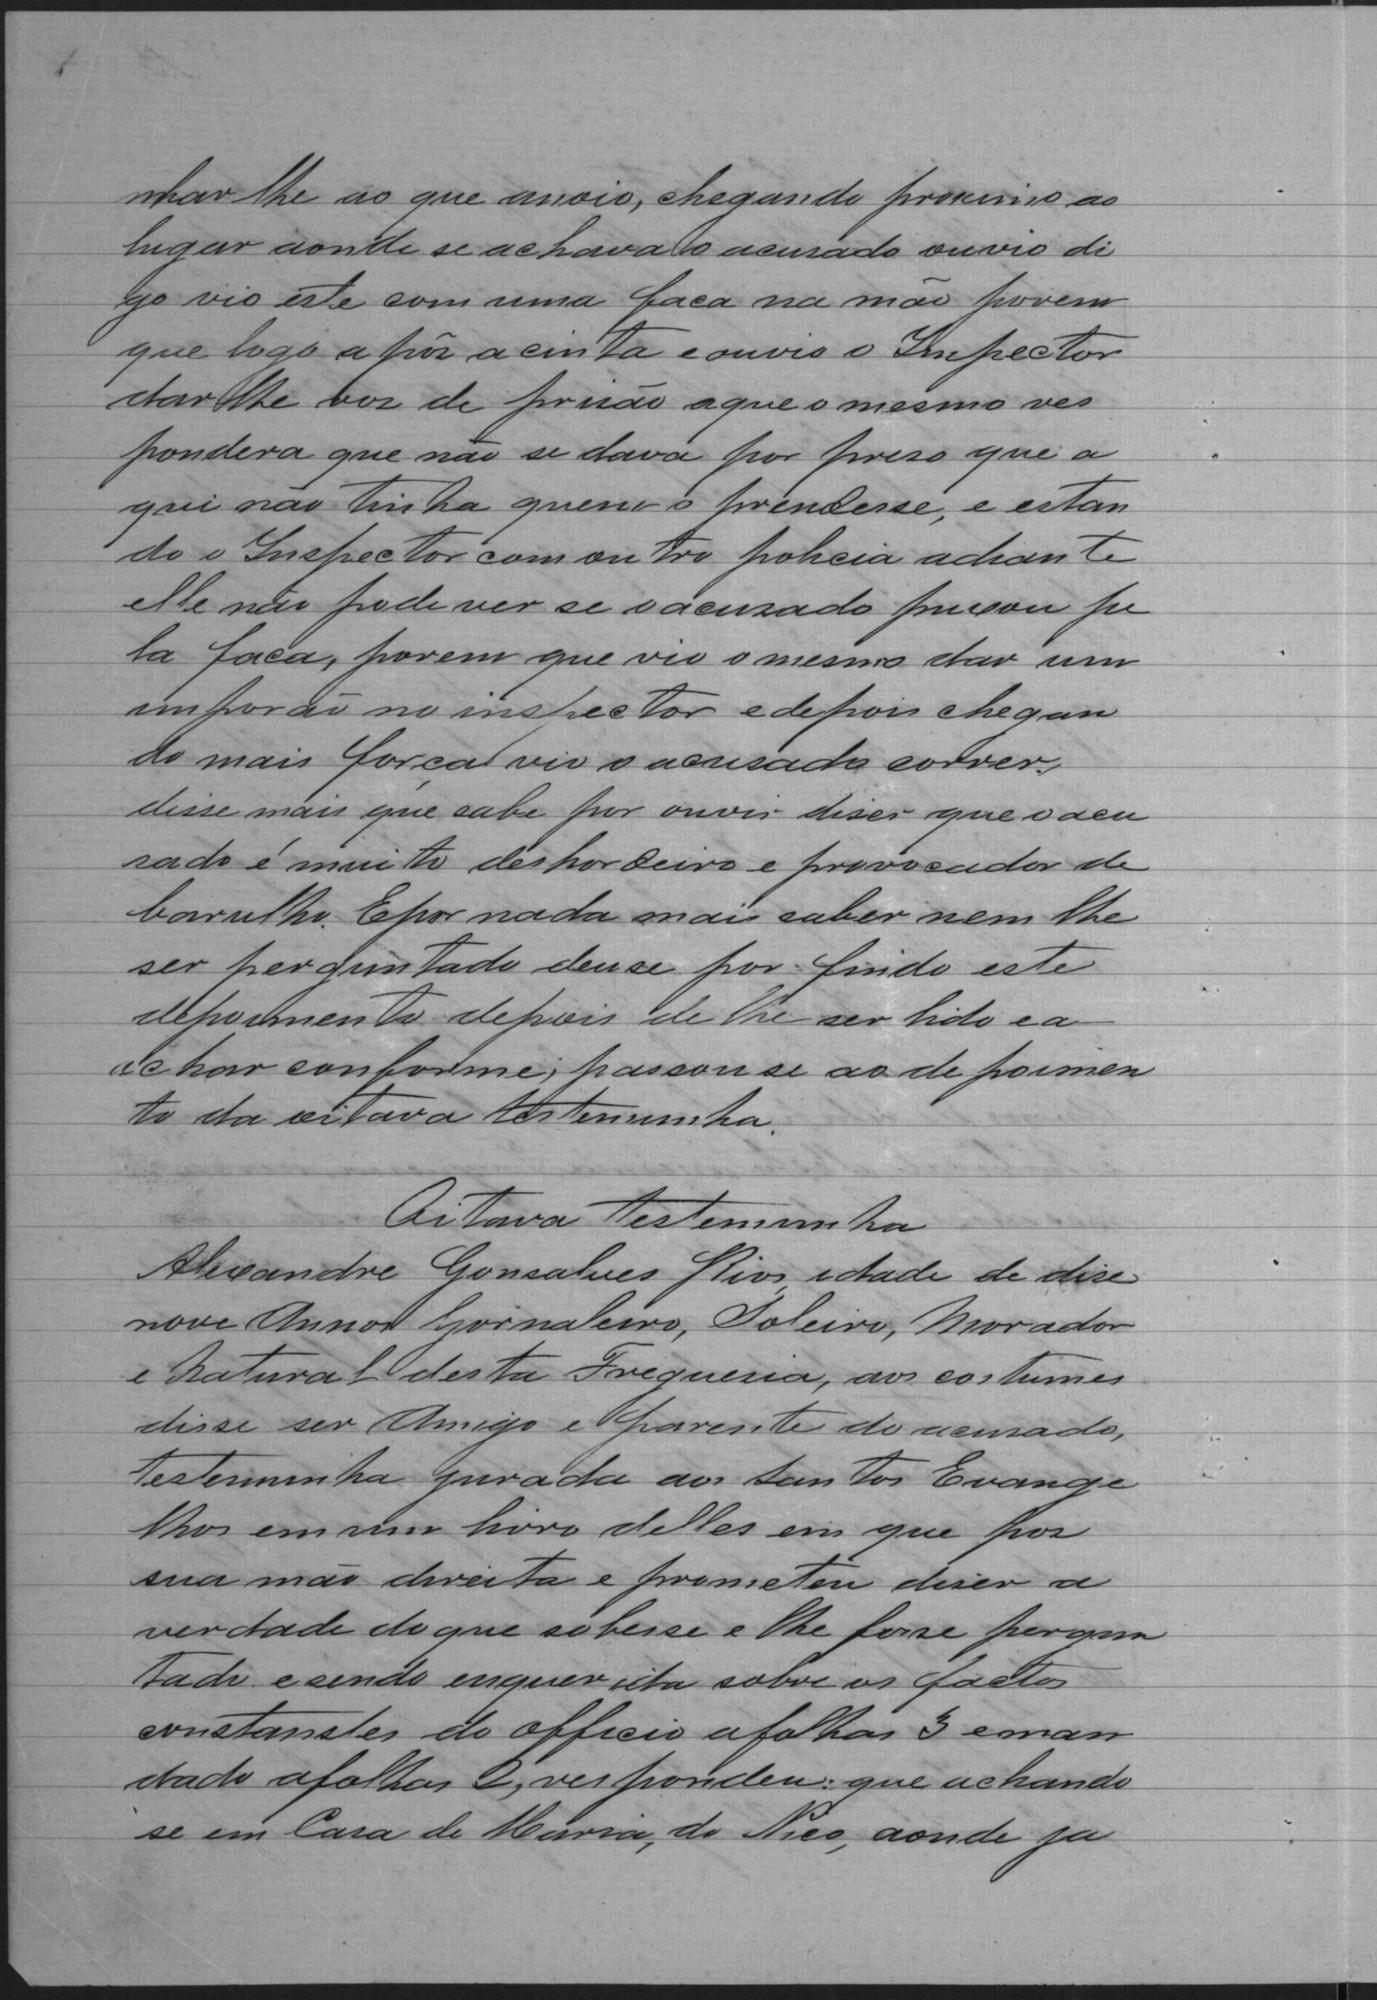 nhar lhe ao que anoio, chegando proximo ao
lugar aonde se achava o acusado ouvio di
go vio este com uma faca na mão porem
que logo a pôs a cinta e ouvio o Inspector
dar lhe vos de prisão a que o mesmo res
pondera que não se dava por preso que a
qui não tinha quem o prendesse, e estan
do o Inspector com outro policia adiante
elle não pode ver se o acusado puxou pe
la faca, porem que vio o mesmo dar um
imporão no inspector e depois chegan
do mais força vio o acusado correr,
disse mais que sabe por ouvir diser que o acu
sado é muito deshordeiro e provocador de
barulho. E por nada mais saber nem lhe
ser perguntado deu se por findo este
depoimento depois de lhe ser lido e a
achar conforme; passou se ao depoimen
to da oitava testemunha.
Oitava testemunha
Alexandre Gonsalves Rios, idade de dise
nove Annos Gornaleiro, Soleiro, Morador
e Natural desta Freguesia, aos costumes
disse ser Amigo e parente do acusado,
testemunha gurada aos Santos Evange
lhos em um livro delles em que pos
sua mão direita e prometeu diser a
verdade do que sobesse e lhe fosse pergun
tado e sendo enquerida sobre os factos
constanstes do officio a folhas 3 e man
dado a folhas 2, respondeu: que achando
se em Casa de Maria, do Nico, aonde ja